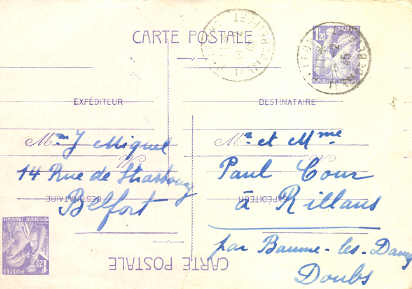 CARTE POSTALE
EXPÉDITEUR
DESTINATAIRE
Mme J Miquel
14 Rue de Strasbourg
Belfort
Mr et Mme
Paul Cour
à Rillans
par Baume-les-Dames
Doubs
DESTINATAIRE
EXPÉDITEUR
CARTE POSTALE